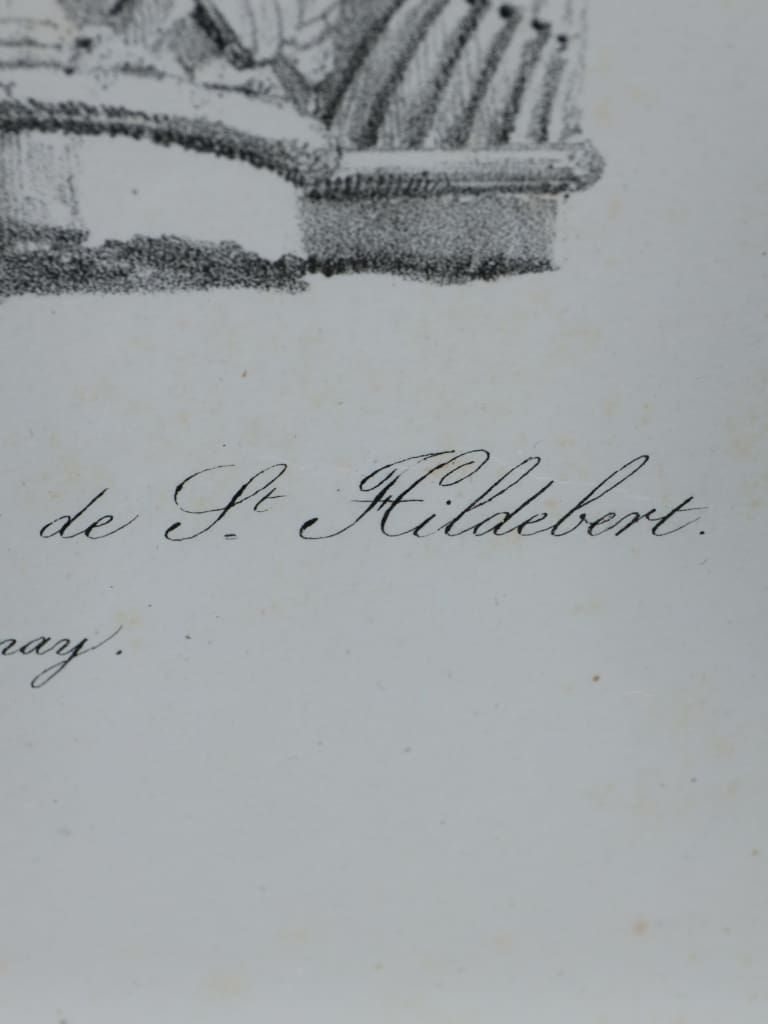 de St Hildebert.
nay.